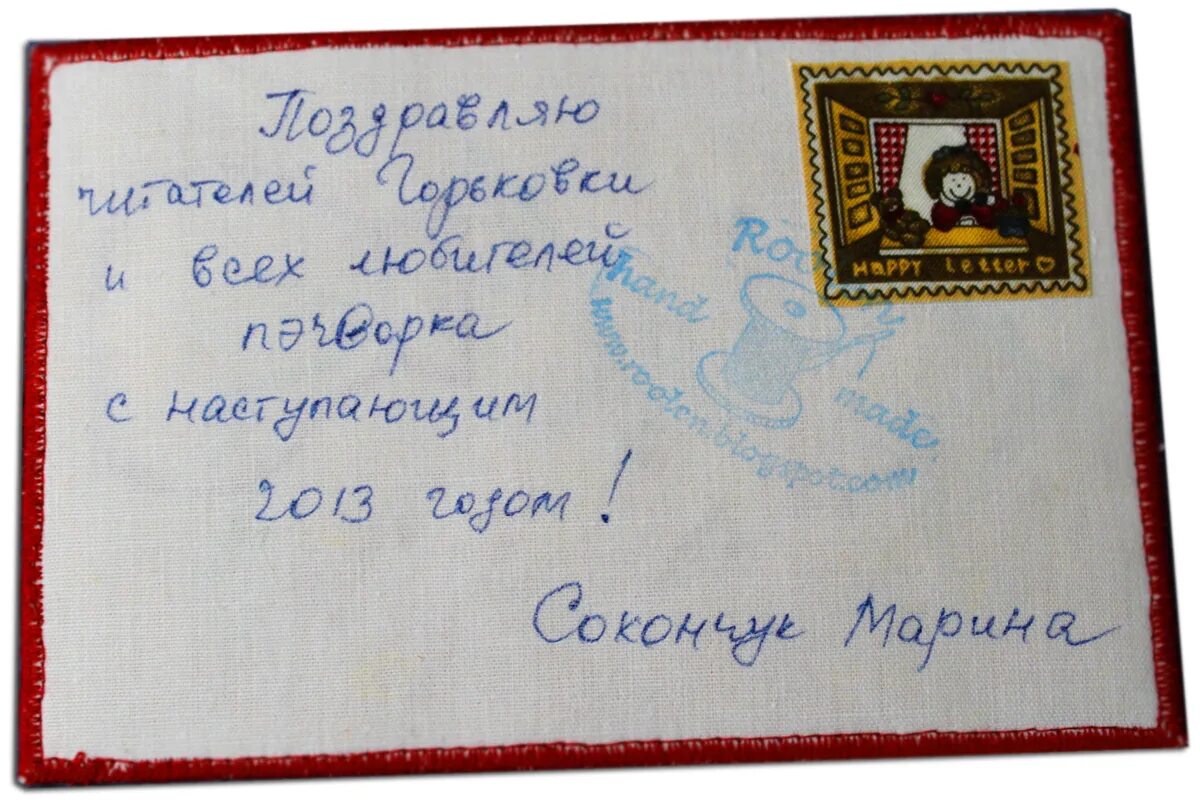 Поздравляю
читателей Горьковки
и всех любителей
пэчворка
с наступающим
2013 годом!
Сокончук Марина
HAPPY Letter
hand made
www.rooton.blogspot.com